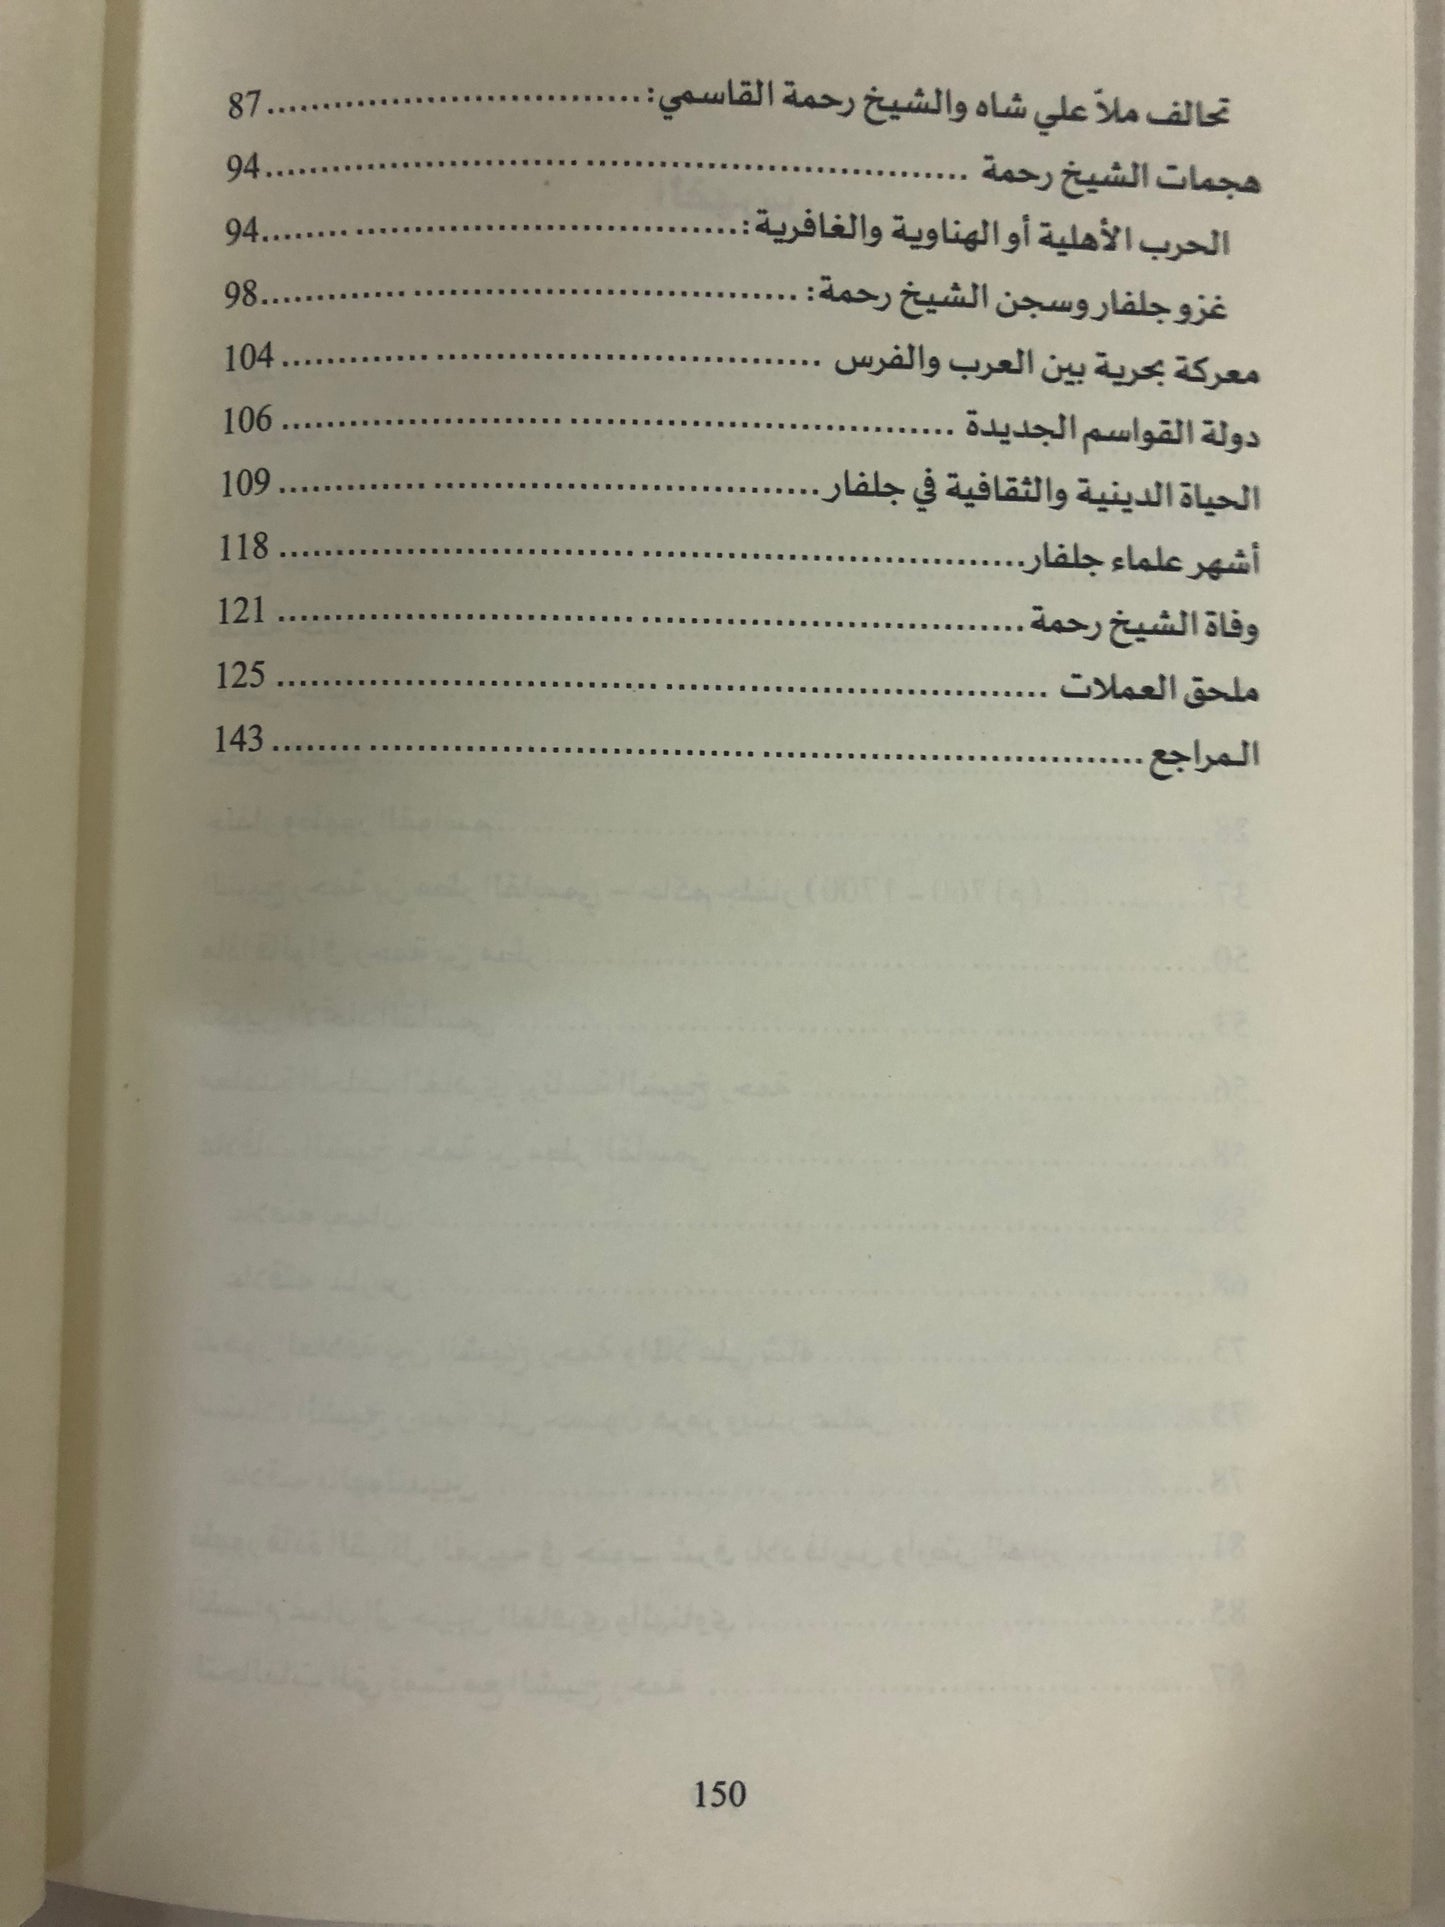 تحالف ملاّ علي شاه والشيخ رحمة القاسمي: ........................................ 87
هجمات الشيخ رحمة ........................................ 94
الحرب الأهلية أو الهناوية والغافرية: ........................................ 94
غزو جلفار وسجن الشيخ رحمة: ........................................ 98
معركة بحرية بين العرب والفرس ........................................ 104
دولة القواسم الجديدة ........................................ 106
الحياة الدينية والثقافية في جلفار ........................................ 109
أشهر علماء جلفار ........................................ 118
وفاة الشيخ رحمة ........................................ 121
ملحق العملات ........................................ 125
المراجع ........................................ 143
150